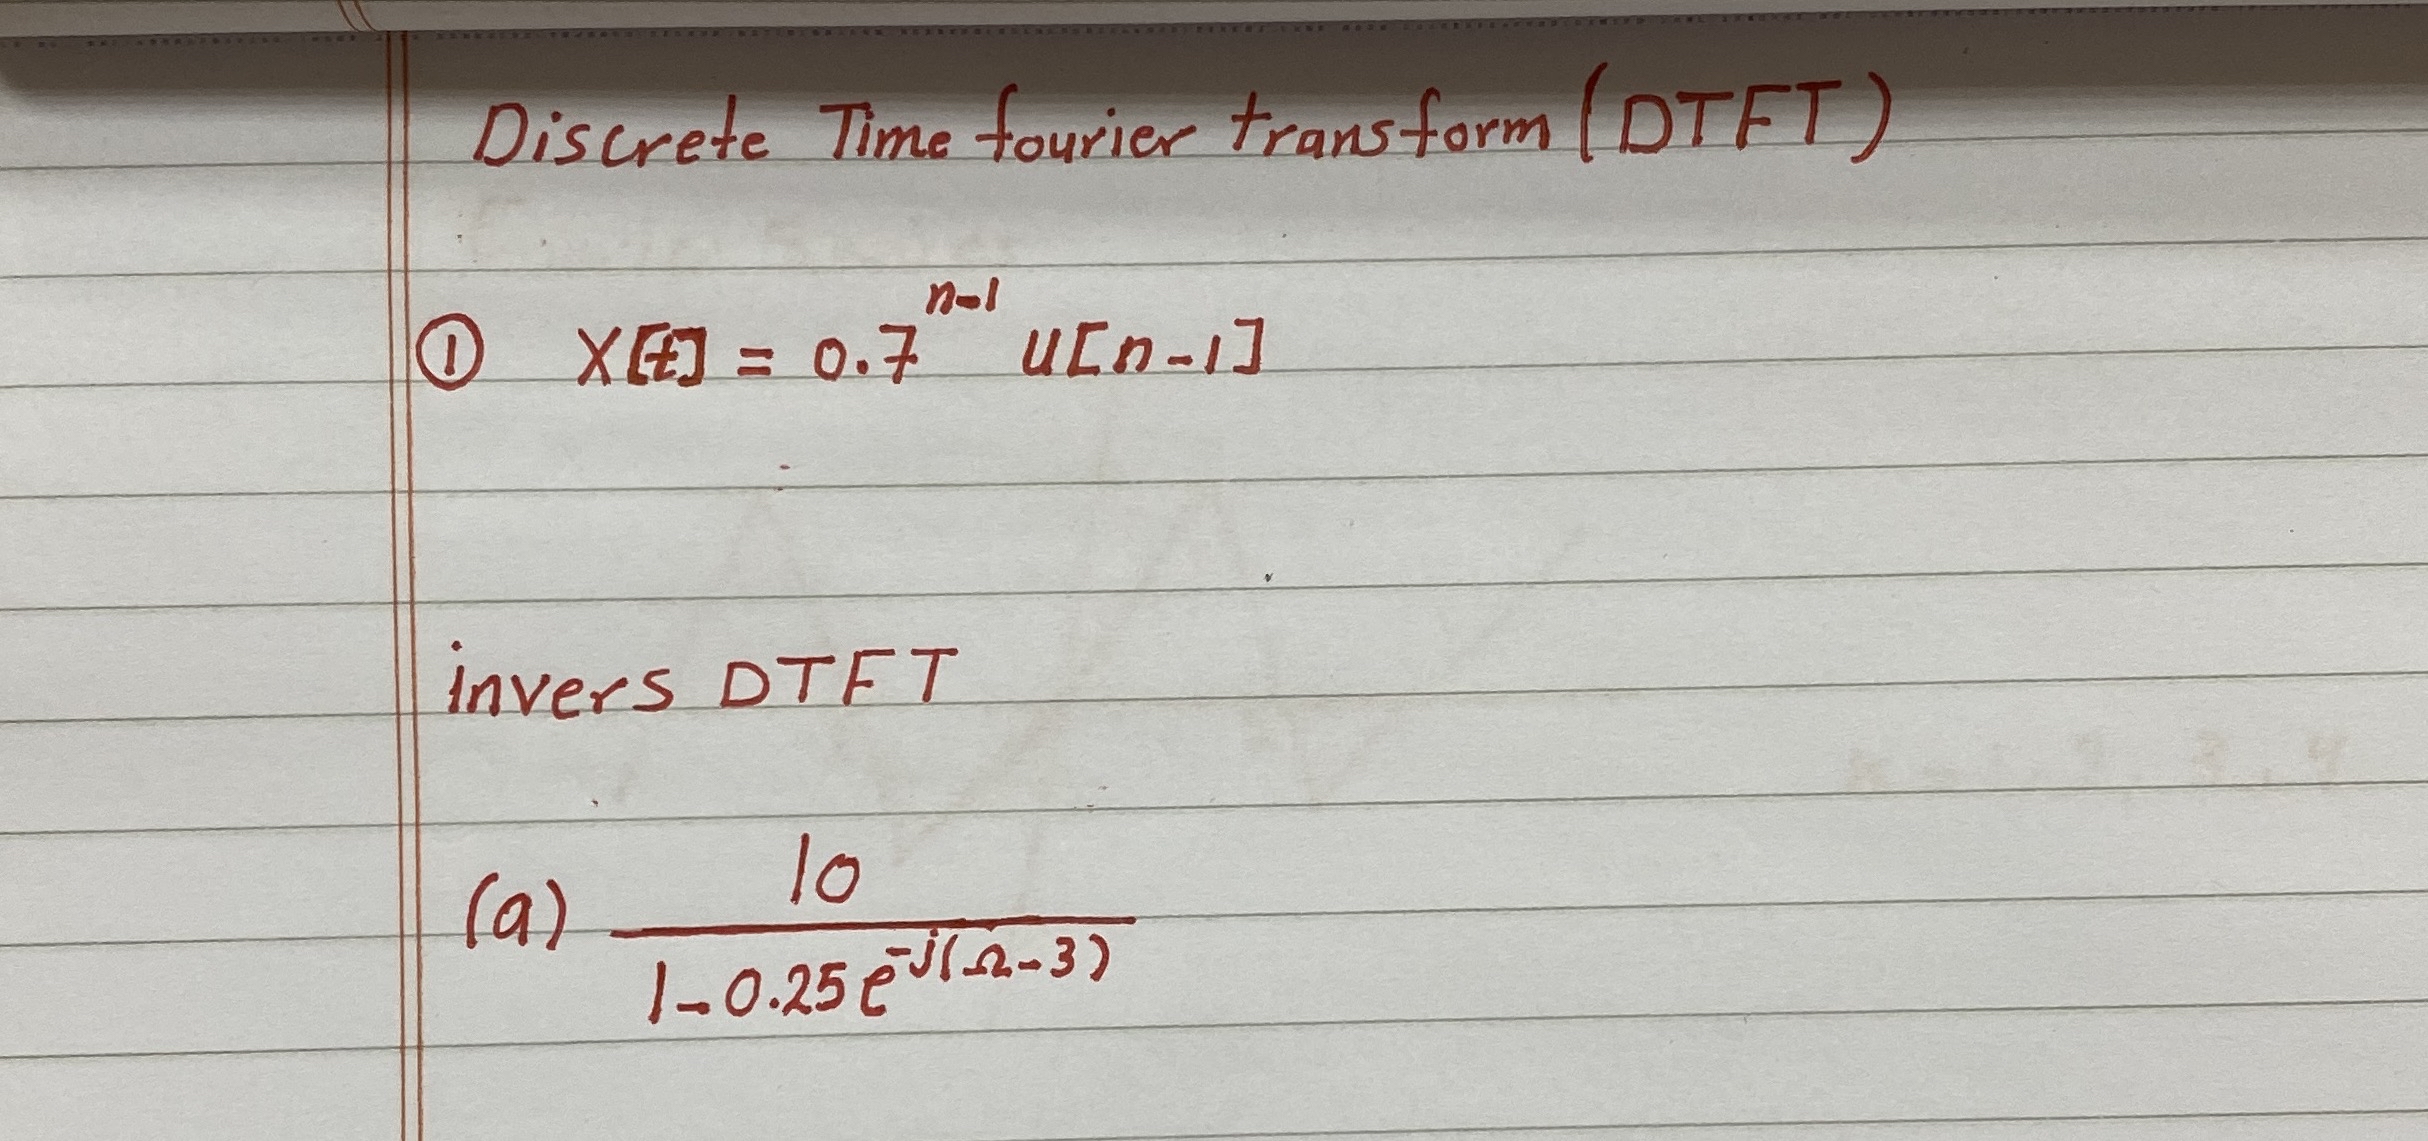 Discrete Time fourier transform (DTFT)
① X[t] = 0.7^{n-1} u[n-1]
invers DTFT
(a) \frac{10}{1-0.25e^{-j(Ω-3)}}